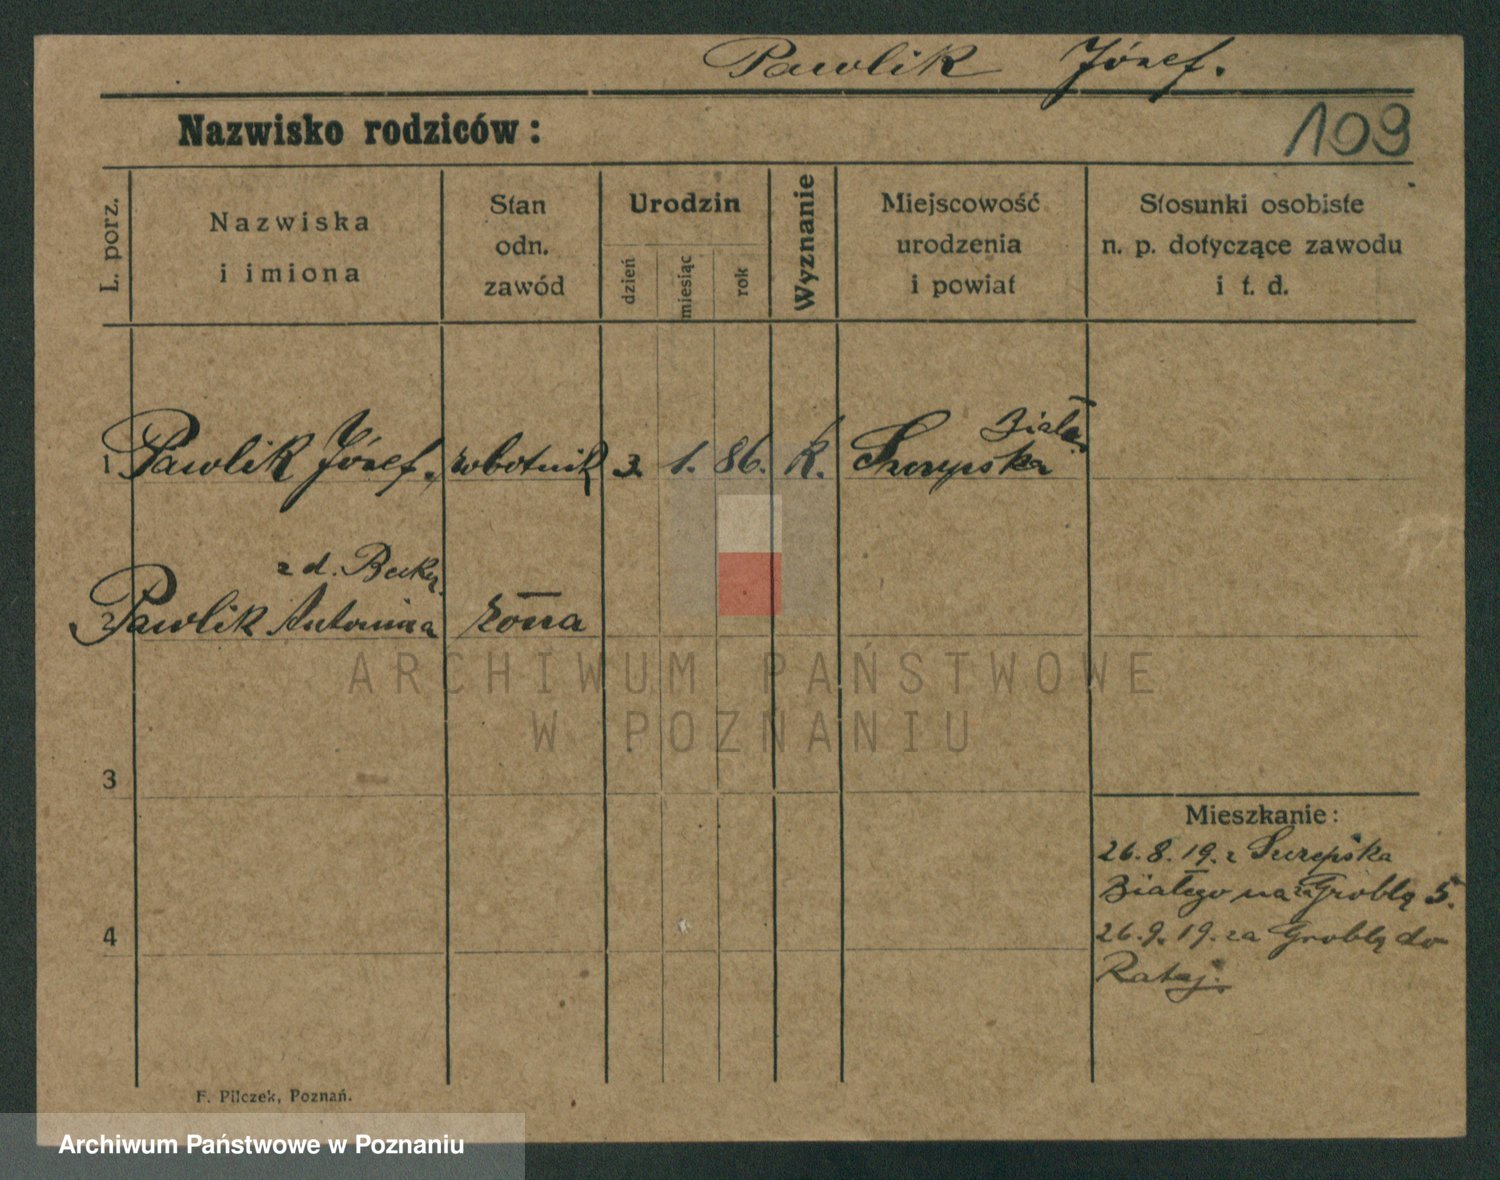 Pawlik Józef.
Nazwisko rodziców:
109
L. porz.
Nazwiska
i imiona
Stan
odn.
zawód
Urodzin
dzień
miesiąc
rok
Wyznanie
Miejscowość
urodzenia
i powiat
Stosunki osobiste
n. p. dotyczące zawodu
i t. d.
1 Pawlik Józef. robotnik 3. 1. 86. k.
z d. Becker
2 Pawlik Antonina żona
ARCHIWUM PAŃSTWOWE
W POZNANIU
3
4
Mieszkanie:
26.8.19. z
Białego na Groblą 5.
26.9.19. za Groblą do
Rataj.
F. Pilczek, Poznań.
Archiwum Państwowe w Poznaniu